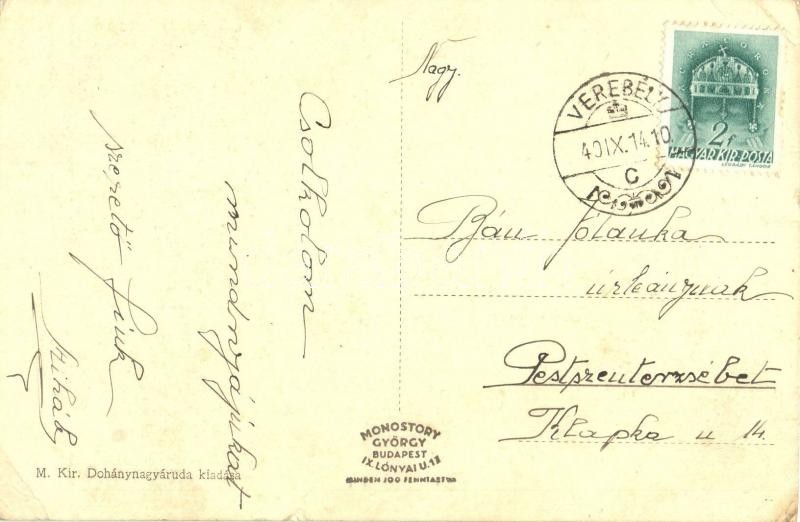 Csolkolom
mindnyájukat
szerető fiuk
Mihály
M. Kir. Dohánynagyáruda kiadása
MONOSTORY
GYÖRGY
BUDAPEST
IX. LÓNYAI U. 18
MINDEN JOG FENNTARTVA
Nagy.
VEREBÉLY
40 IX. 14. 10
C
SZENT KORONA
2f
MAGYAR KIR. POSTA
LÉGRÁDY SÁNDOR
Bán Jólanka
úrleánynak
Pestszenterzsébet
Klapka u 14.